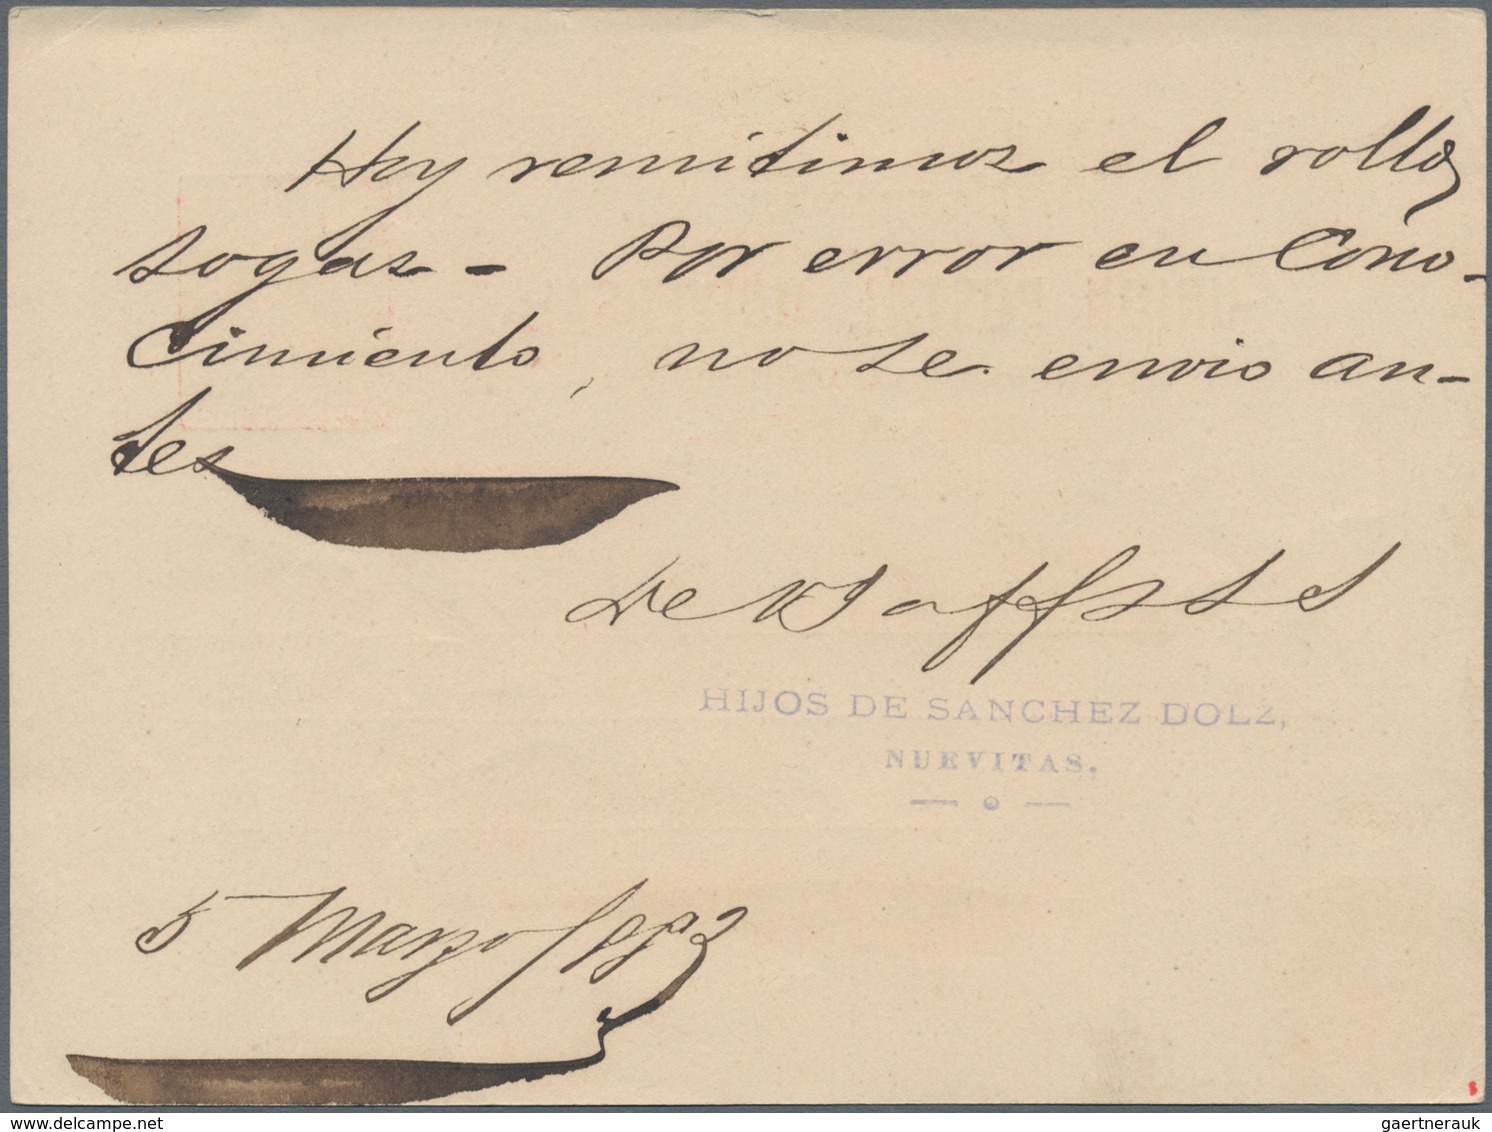 Hoy remitimos el rollo
sogas - Por error en Cono-
cimiento, no se envio an-
tes
De Vd af
HIJOS DE SANCHEZ DOLZ,
NUEVITAS.
5 Marzo/
delcampe.net
gaertnerauk